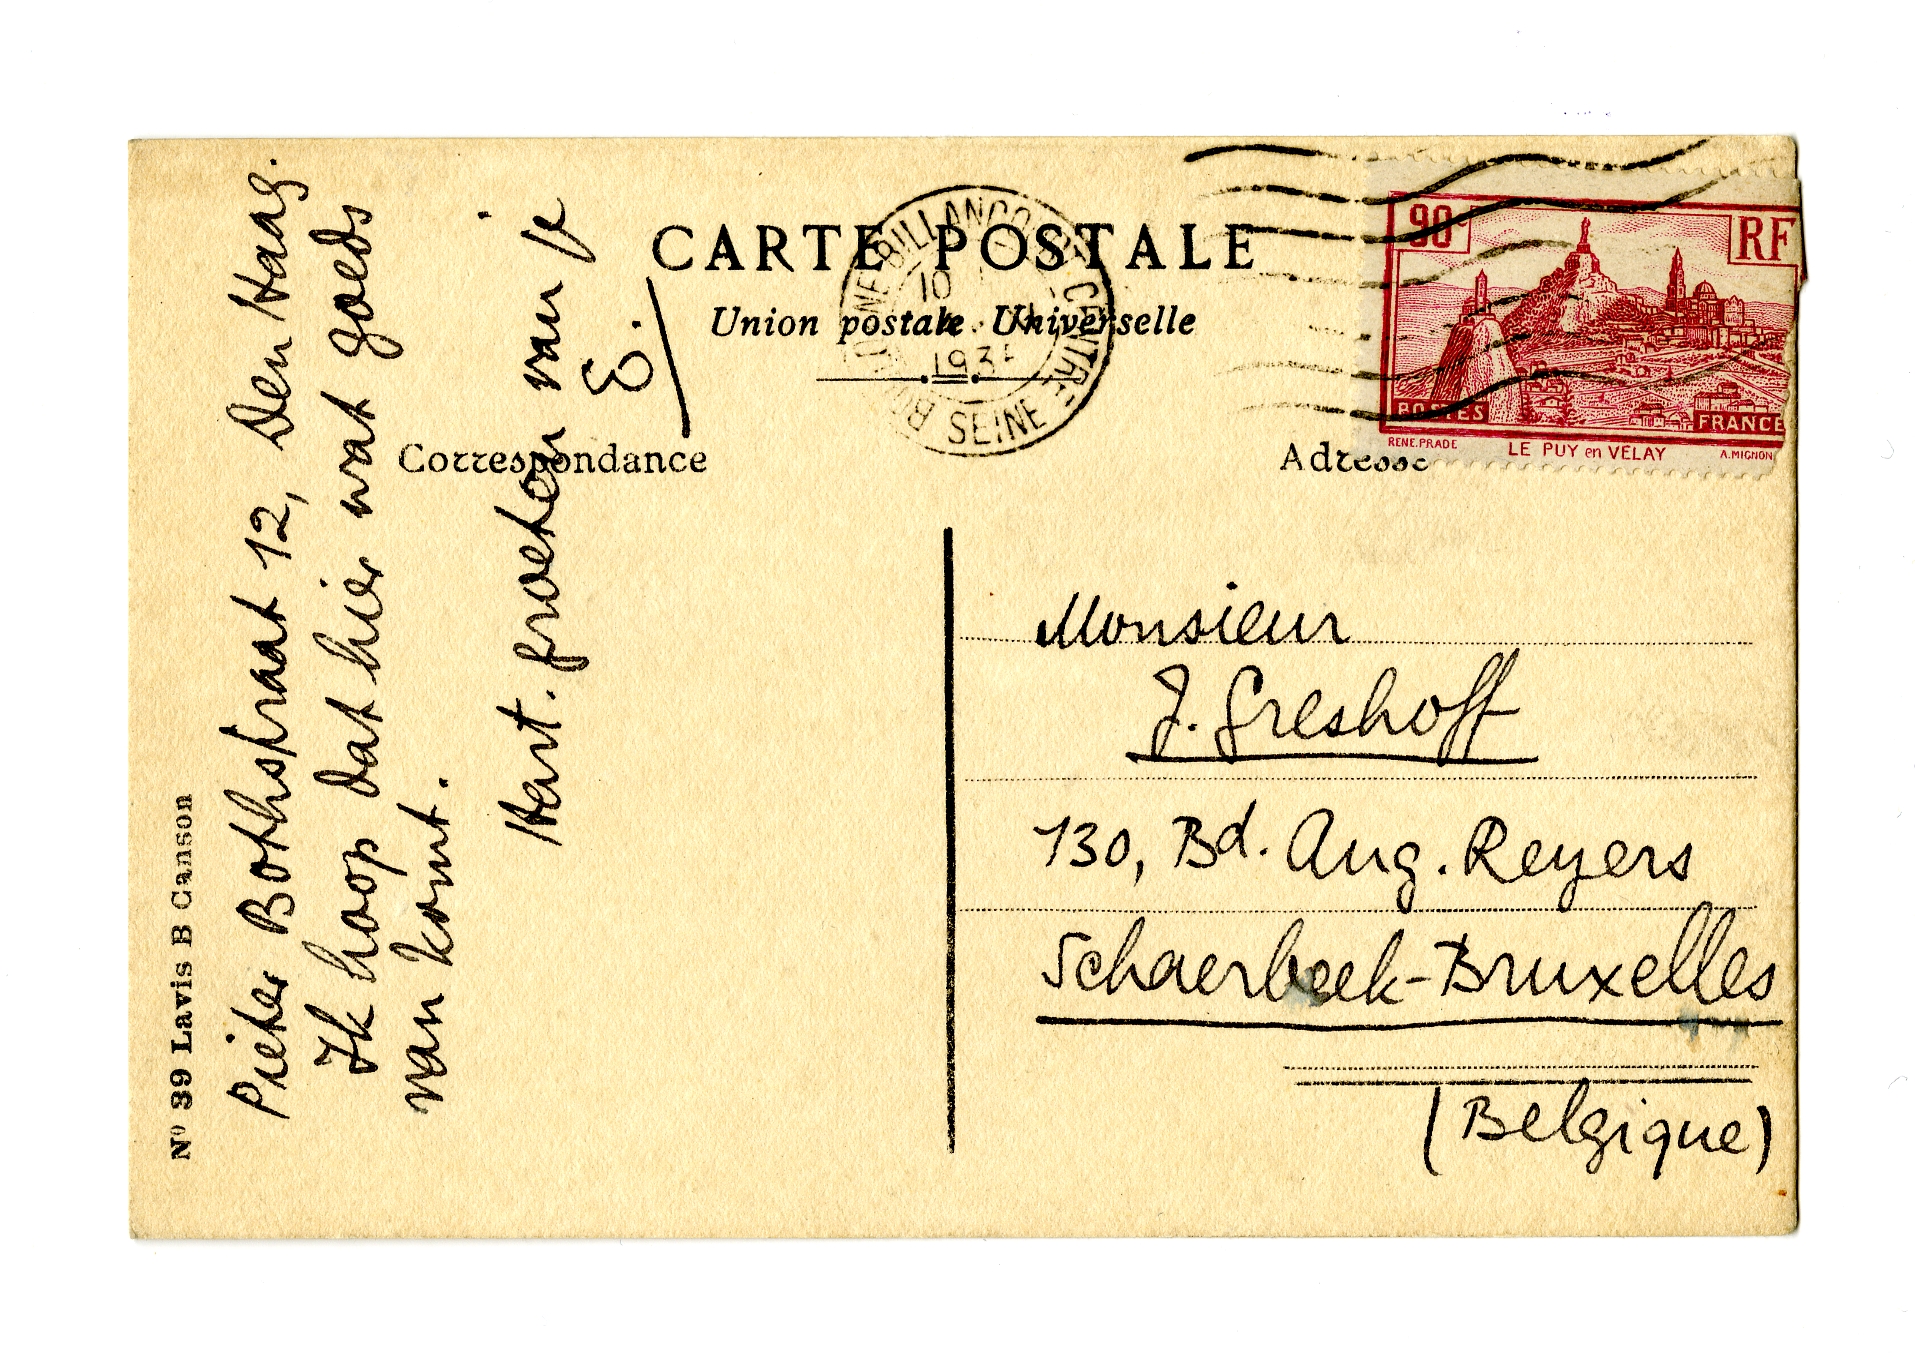 CARTE POSTALE
Union postale Universelle
Correspondance
Adresse
BILLANCOURT CENTRE
10
193
SEINE
90c
RF
POSTES
FRANCE
RENE.PRADE
LE PUY en VELAY
A.MIGNON
Nº 39 Lavis B Canson
Pieter Bothstraat 12, Den Haag.
Ik hoop dat hier wat goeds
van komt.
Hart. groeten van je
E.
Monsieur
J. Greshoff
130, Bd. Aug. Reyers
Schaerbeek-Bruxelles
(Belgique)